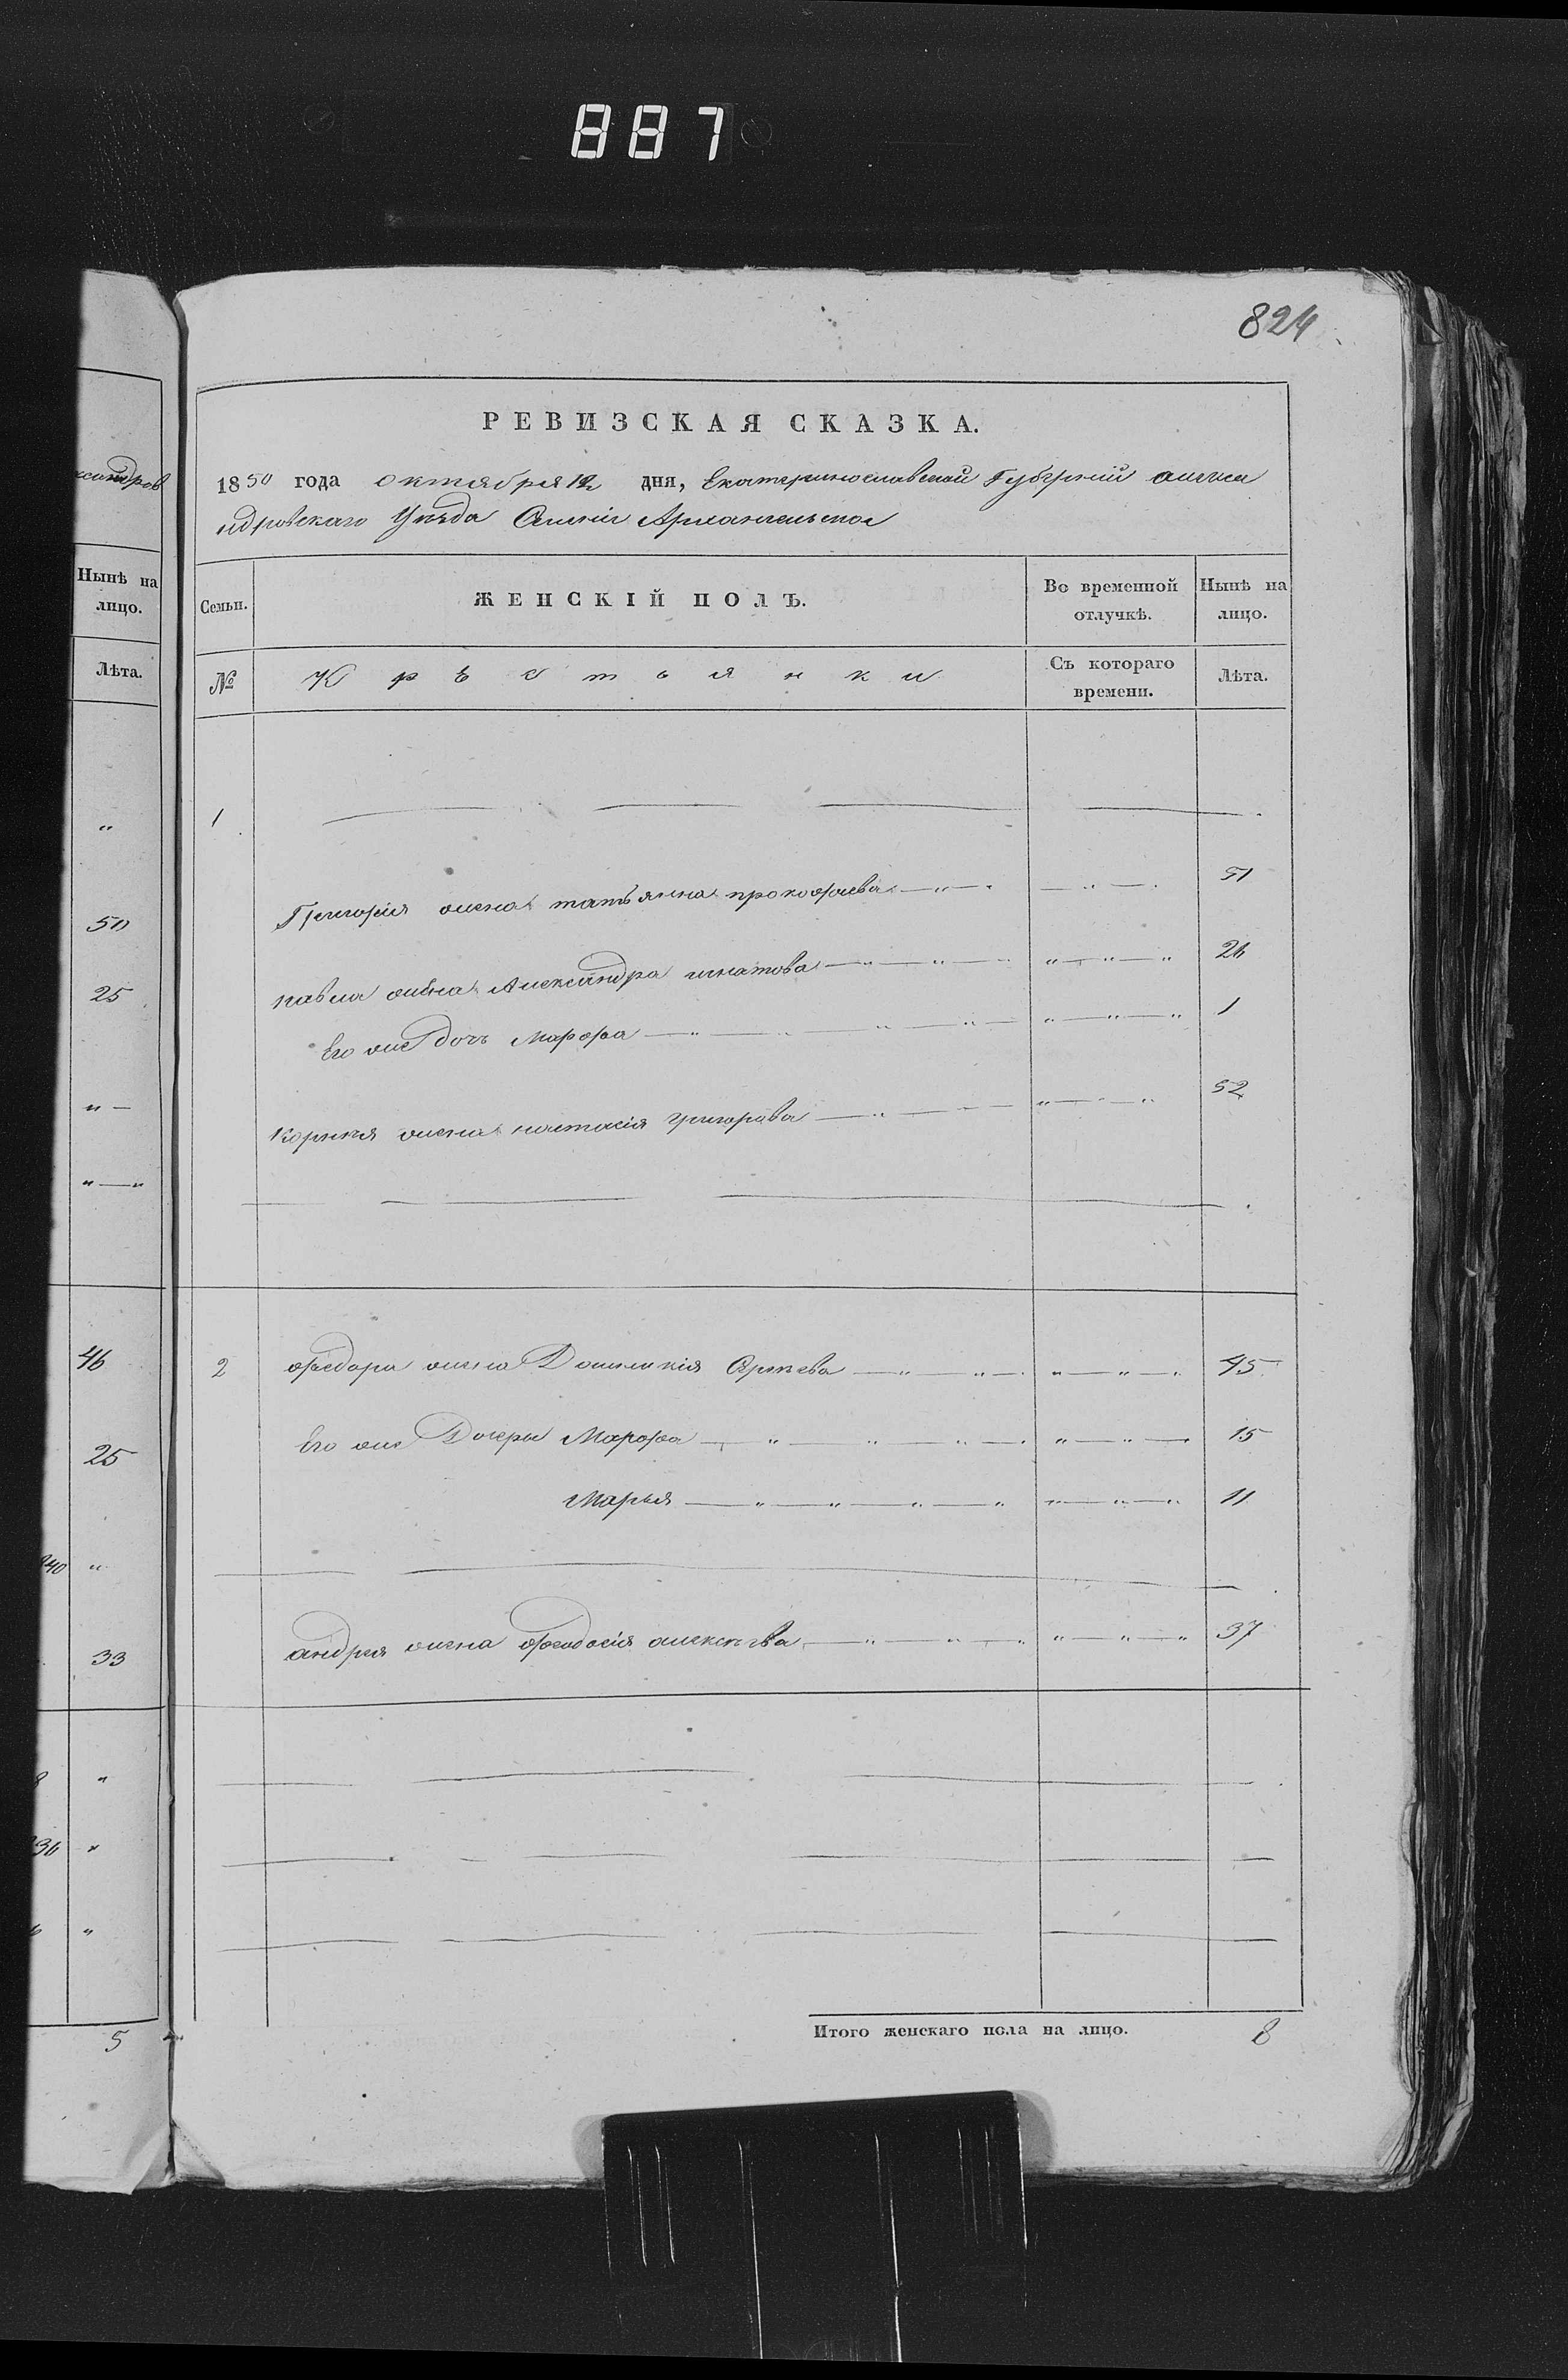 887
824
РЕВИЗСКАЯ СКАЗКА.
1850 года октября 12 дня, Екатеринославской Губерніи алекса
ндровскаго Уѣзда Архангельское
Семьи.
ЖЕНСКІЙ ПОЛЪ.
Во временной отлучкѣ.
Нынѣ на лицо.
№
Крѣстьянки
Съ котораго времени.
Лѣта.
1
Григорія жена татьянна прокофьева 51
павла жена Александра игнатова 26
Его же дочь Марфа 1
Корнѣя жена настасія григорьева 52
2 Федора жена Домникія 45
Его же Дочери Марфа 15
Марья 11
андрея жена Феодосія алексѣева 37
Итого женскаго пола на лицо. 8
ксандров
Нынѣ на лицо.
Лѣта.
50
25
46
25
840
33
36
5